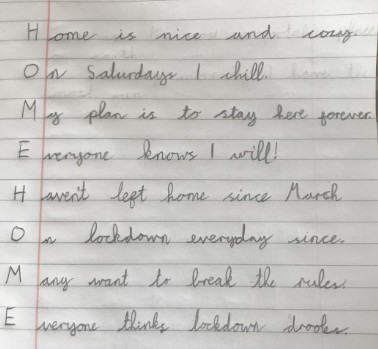 Home is nice and cozy
On Saturdays I chill.
My plan is to stay here forever.
Everyone knows I will!
Haven't left home since March
On lockdown everyday since.
Many want to break the rules.
Everyone thinks lockdown drools.